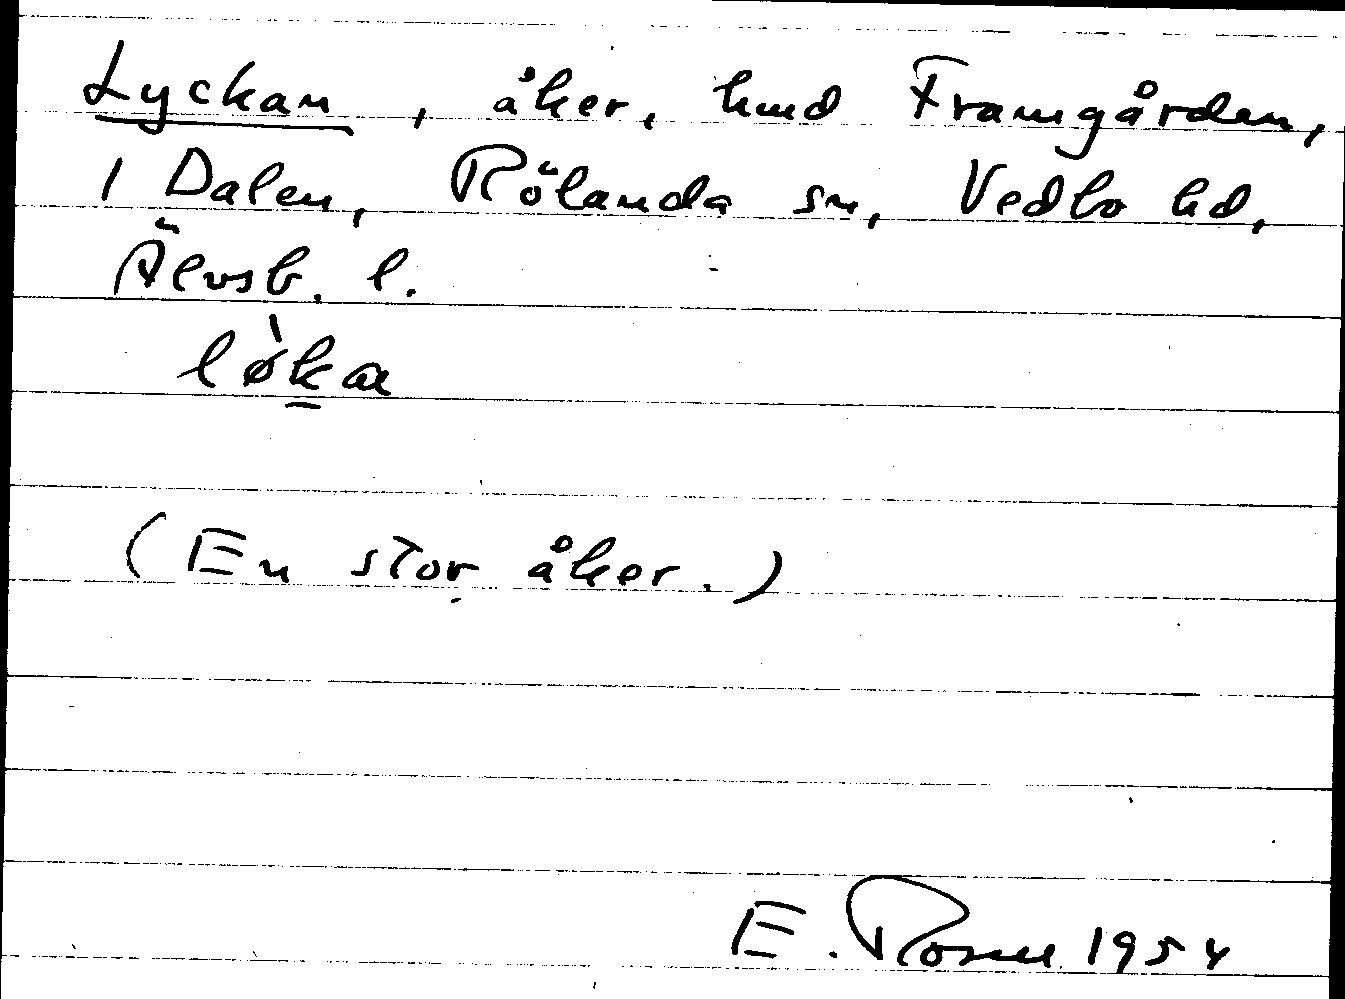 Lyckan, åker, hmd Framgården,
1 Dalen, Rölanda sn, Vedbo hd,
Älvsb. l.
lø̀ka
(En stor åker.)
E. Rosell 1954